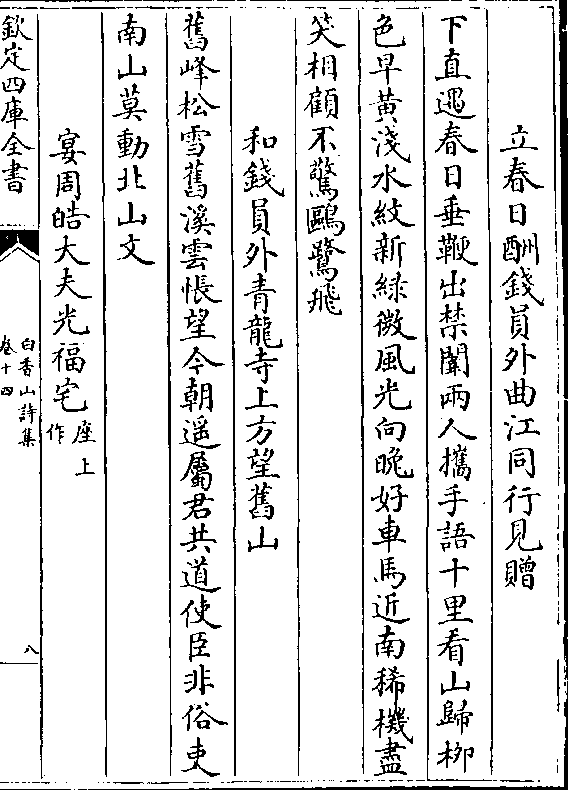 立春日酬錢員外曲江同行見贈
下直遇春日垂鞭出禁闈兩人攜手語十里看山歸栁
色早黄淺水紋新緑微風光向晚好車馬近南稀機盡
笑相顧不驚鷗鷺飛
和錢員外青龍寺上方望舊山
舊峰松雪舊溪雲悵望今朝遥屬君共道使臣非俗吏
南山莫動北山文
宴周皓大夫光福宅座上作
欽定四庫全書
白香山詩集
卷十四
八